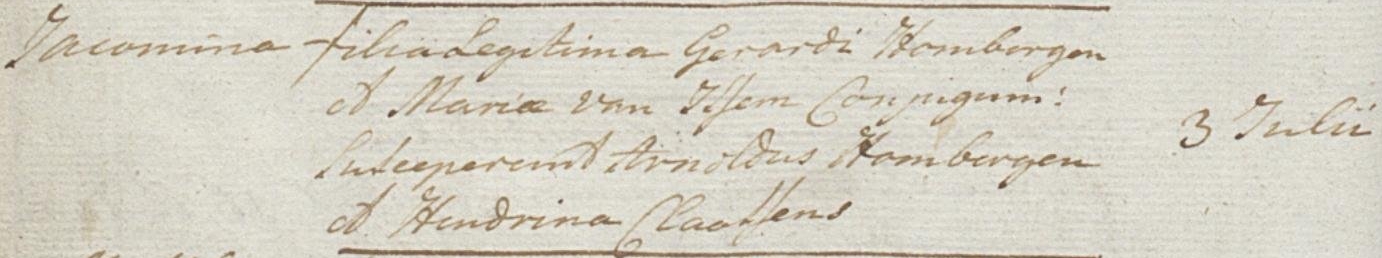 Jacomina filia Legitima Gerardi Hombergen
et Mariæ van Issem Conjugum:
Susceperunt Arnoldus Hombergen
et Hendrina Claassens
3 Julii